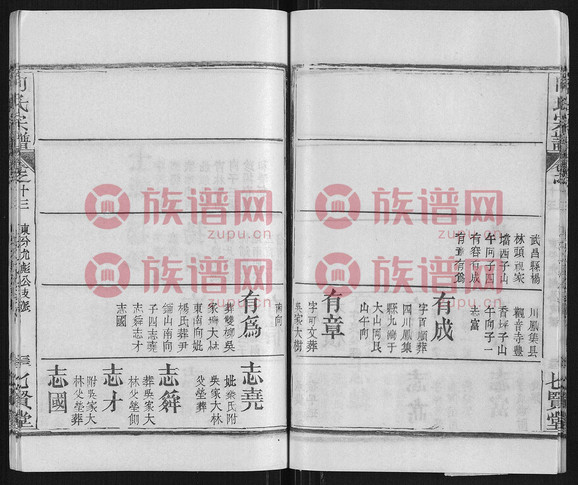 武昌縣楊
林頭祝家
壋酉子山
午向子四
有容有成
有章有為
有成
字百順葬
四川鳳集
縣九灣于
大山岡艮
山午向
川鳳集县
觀音寺壘
香坪子山
午向子一
志富
有章
字可文葬
吳家大樹
南向
有為
葬雙樓吳
家壪大林
東南向妣
楊氏葬尹
鋪山南向
子四志堯
志舜志才
志國
志堯
妣葉氏附
吳家大林
父塋葬
志舜
葬吳家大
林父塋側
志才
附吳家大
林父塋葬
志國
氏宗譜
卷之十三
七賢堂
族谱网
www.zupu.cn